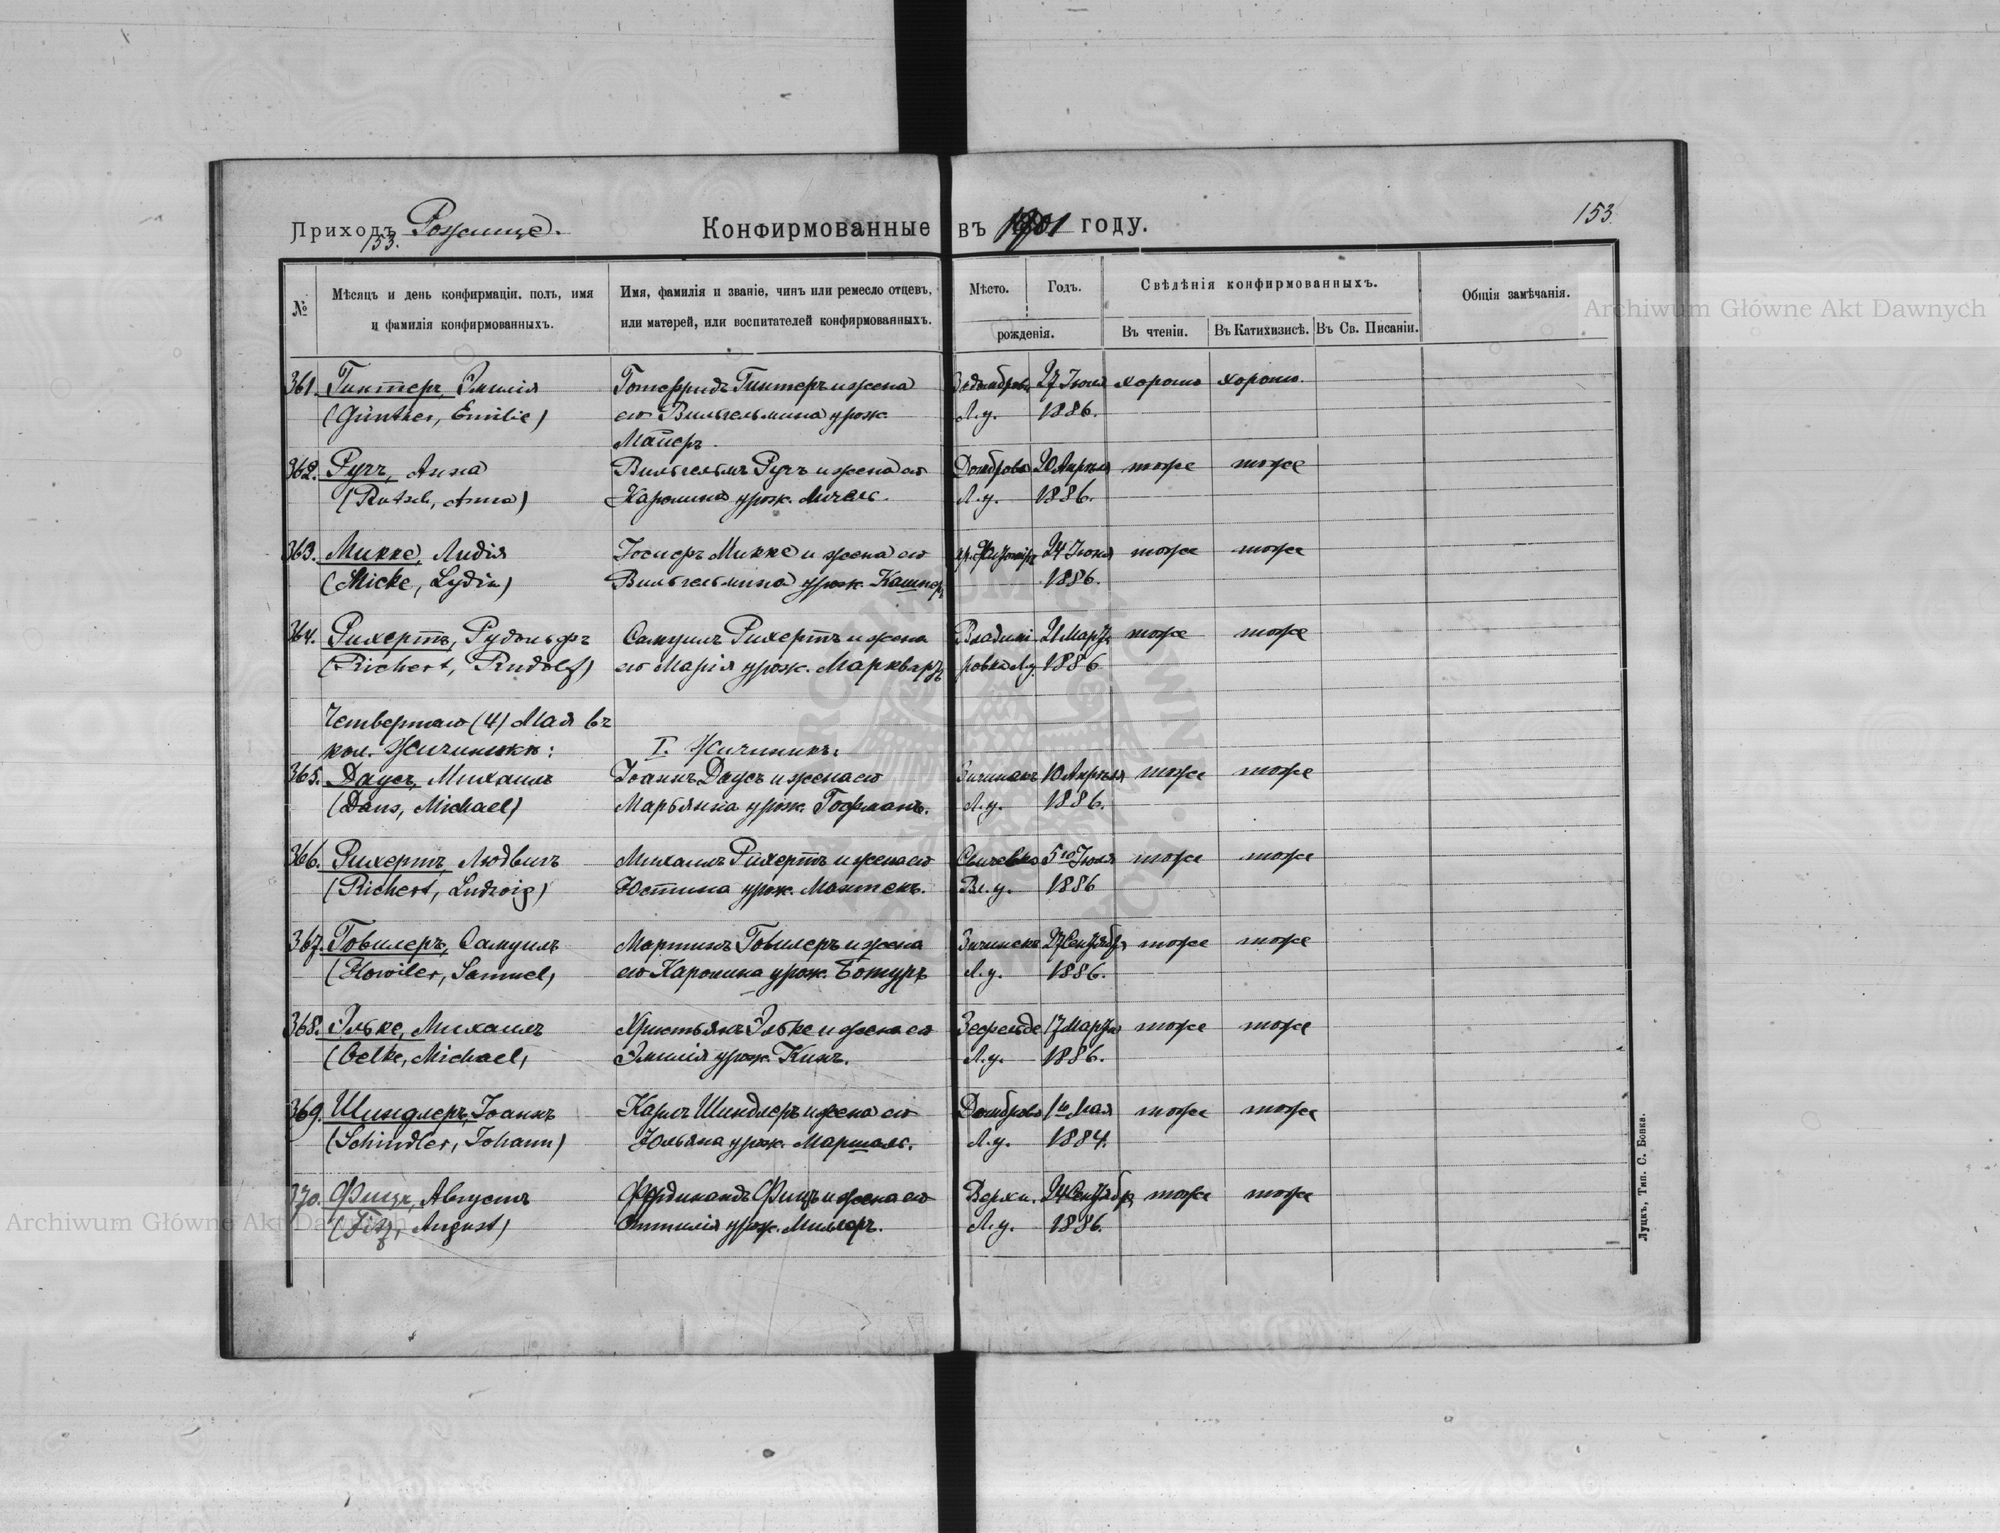 Приходъ Рожище.
153.
Конфирмованные въ 1901 году.
153
№
Мѣсяцъ и день конфирмаціи, полъ, имя
и фамилія конфирмованныхъ.
Имя, фамилія и званіе, чинъ или ремесло отцевъ,
или матерей, или воспитателей конфирмованныхъ.
Мѣсто.
Годъ.
рожденія.
Свѣдѣнія конфирмованныхъ.
Въ чтеніи.
Въ Катихизисѣ.
Въ Св. Писаніи.
Общія замѣчанія.
Archiwum Główne Akt Dawnych
361. Гинтеръ, Эмилія Готфридъ Гинтеръ и жена 27 Іюля хорошо хорошо.
(Günther, Emilie) его Вильгельмина урож. Л.у. 1886.
Майеръ.
362. Рутъ, Анна Вильгельмъ Рутъ и жена его Домброва 20 Апрѣля тоже тоже
(Rutsch, Anna) Каролина урож. Л.у. 1886.
363. Микке, Лидія Іосифъ Микке и жена его 24 Іюня тоже тоже
(Micke, Lydia) Вильгельмина урож. Кашнеръ 1886.
364. Рихертъ, Рудольфъ Самуилъ Рихертъ и жена Владими- 21 Марта тоже тоже
(Richert, Rudolf) его Марія урож. Марквартъ ровка Лу. 1886
Четвертаго (4) Мая въ
кол. Жичинекъ: I. Жичинекъ.
365. Даусъ, Михаилъ Іоаннъ Даусъ и жена его 10 Апрѣля тоже тоже
(Daus, Michael) Марьянна урож. Гофманъ. Л.у. 1886.
366. Рихертъ, Людвигъ Михаилъ Рихертъ и жена его 5го Іюля тоже тоже
(Richert, Ludwig) Юстина урож. Вл.у. 1886
367. Говилеръ, Самуилъ Мартинъ Говилеръ и жена 27 Сентября тоже тоже
(Howiler, Samuel) его Каролина урож. Л.у. 1886.
368. Эльке, Михаилъ Христьянъ Эльке и жена его Зефельде 17 Марта тоже тоже
(Oelke, Michael) Эмилія урож. Кинъ. Л.у. 1886.
369. Шиндлеръ, Іоаннъ Карлъ Шиндлеръ и жена его Домброва 1го Мая тоже тоже
(Schindler, Johann) Юльяна урож. Маршалъ. Л.у. 1884.
370. Фицъ, Августъ Фердинандъ Фицъ и жена его Верхи. 24 Сентября тоже тоже
Archiwum Główne Akt Dawnych
(Fitz, August) Оттилія урож. Миллеръ. Л.у. 1886.
Луцкъ, Тип. С. Бонка.